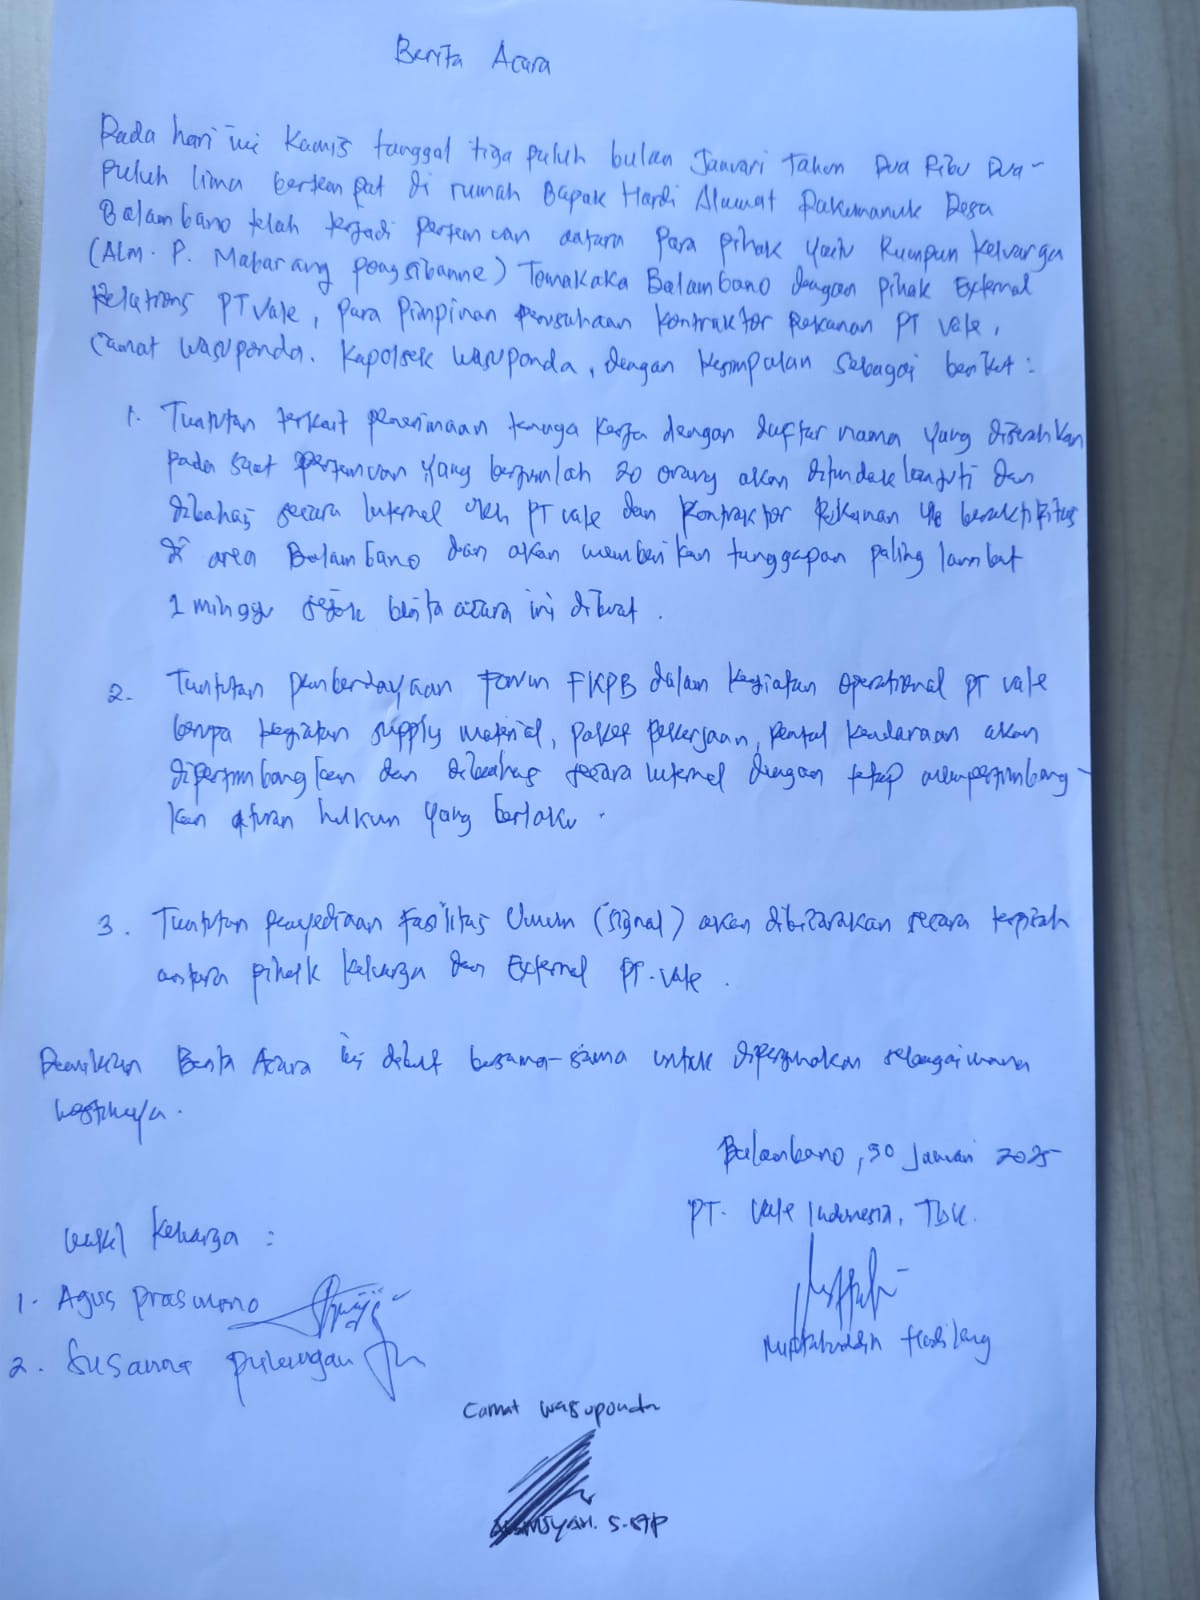 Berita Acara
Pada hari ini Kamis tanggal tiga puluh bulan Januari Tahun Dua Ribu Dua-
puluh lima bertempat di rumah Bapak Hardi Alamat Desa
Balambano telah terjadi pertemuan antara Para pihak yaitu Rumpun Keluarga
(Alm. P. Mabarang pongsibanne) Tomakaka Balambano dengan pihak External
Relations PT Vale, Para Pimpinan perusahaan kontraktor Rekanan PT Vale,
Camat Wasuponda. Kapolsek Wasuponda, dengan kesimpulan sebagai berikut :
1. Tuntutan terkait penerimaan tenaga kerja dengan daftar nama yang diserahkan
pada saat pertemuan yang berjumlah 20 orang akan ditindaklanjuti dan
dibahas secara Internal oleh PT Vale dan Kontraktor Rekanan yg beraktifitas
di area Balambano dan akan memberikan tanggapan paling lambat
1 minggu sejak berita acara ini dibuat.
2. Tuntutan pemberdayaan Forum FKPB dalam kegiatan operational PT Vale
berupa kegiatan supply material, paket pekerjaan, rental kendaraan akan
dipertimbangkan dan dibahas secara Internal dengan tetap mempertimbang-
kan aturan hukum yang berlaku.
3. Tuntutan penyediaan Fasilitas Umum (signal) akan dibicarakan secara terpisah
antara pihak keluarga dan External PT. Vale.
Demikian Berita Acara ini dibuat bersama-sama untuk dipergunakan sebagaimana
mestinya.
Balambano, 30 Januari 2025
PT. Vale Indonesia, Tbk.
Wakil Keluarga :
1. Agus Praswono
2. Susanna
Camat Wasuponda
S.STP